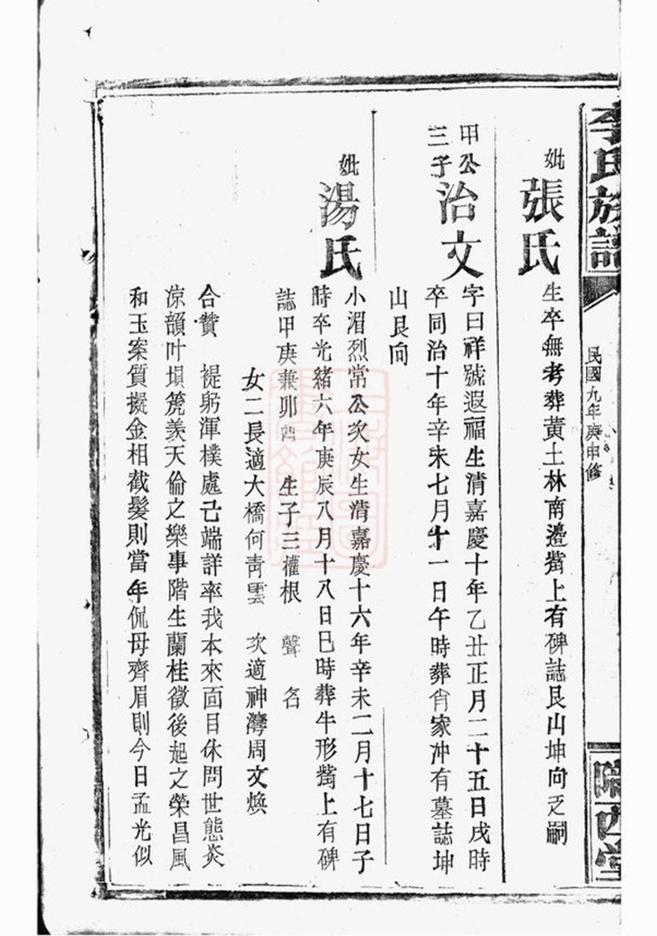 李氏族譜
民國九年庚申修
隴西堂
妣張氏
生卒無考葬黃土林南邉嘴上有碑誌艮山坤向乏嗣
甲公三子治文
字曰祥號遐福生清嘉慶十年乙丑正月二十五日戌時
卒同治十年辛未七月十一日午時葬肖家冲有墓誌坤
山艮向
妣湯氏
小湄烈常公次女生清嘉慶十六年辛未二月十七日子
時卒光緒六年庚辰八月十八日巳時葬牛形嘴上有碑
誌甲庚兼卯酉 生子三權根 聲 名
女二長適大橋何青雲 次適神灣周文煥
合贊 禔躬渾樸處己端詳率我本來面目休問世態炎
涼韻叶塤箎羨天倫之樂事階生蘭桂徵後起之榮昌風
和玉案質擬金相截髮則當年侃母齊眉則今日孟光似